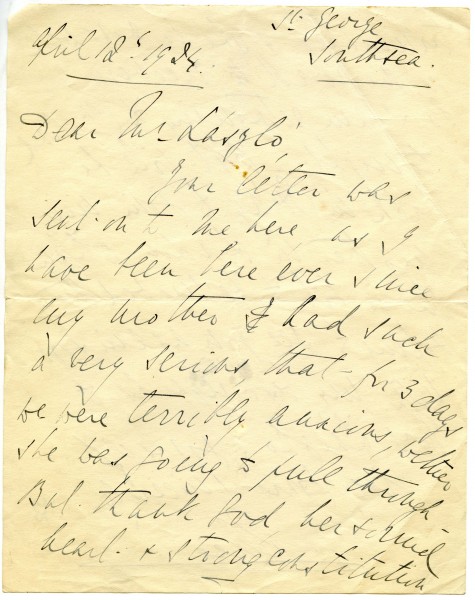 St. George
Southsea.
April 12th 1924.
Dear Mr László,
Your letter was
sent on to me here, as I
have been here ever since
my mother & had such
a very serious, that for 3 days
we were terribly anxious, wether
she was going to pull through
But thank God, her sound
heart & strong constitution